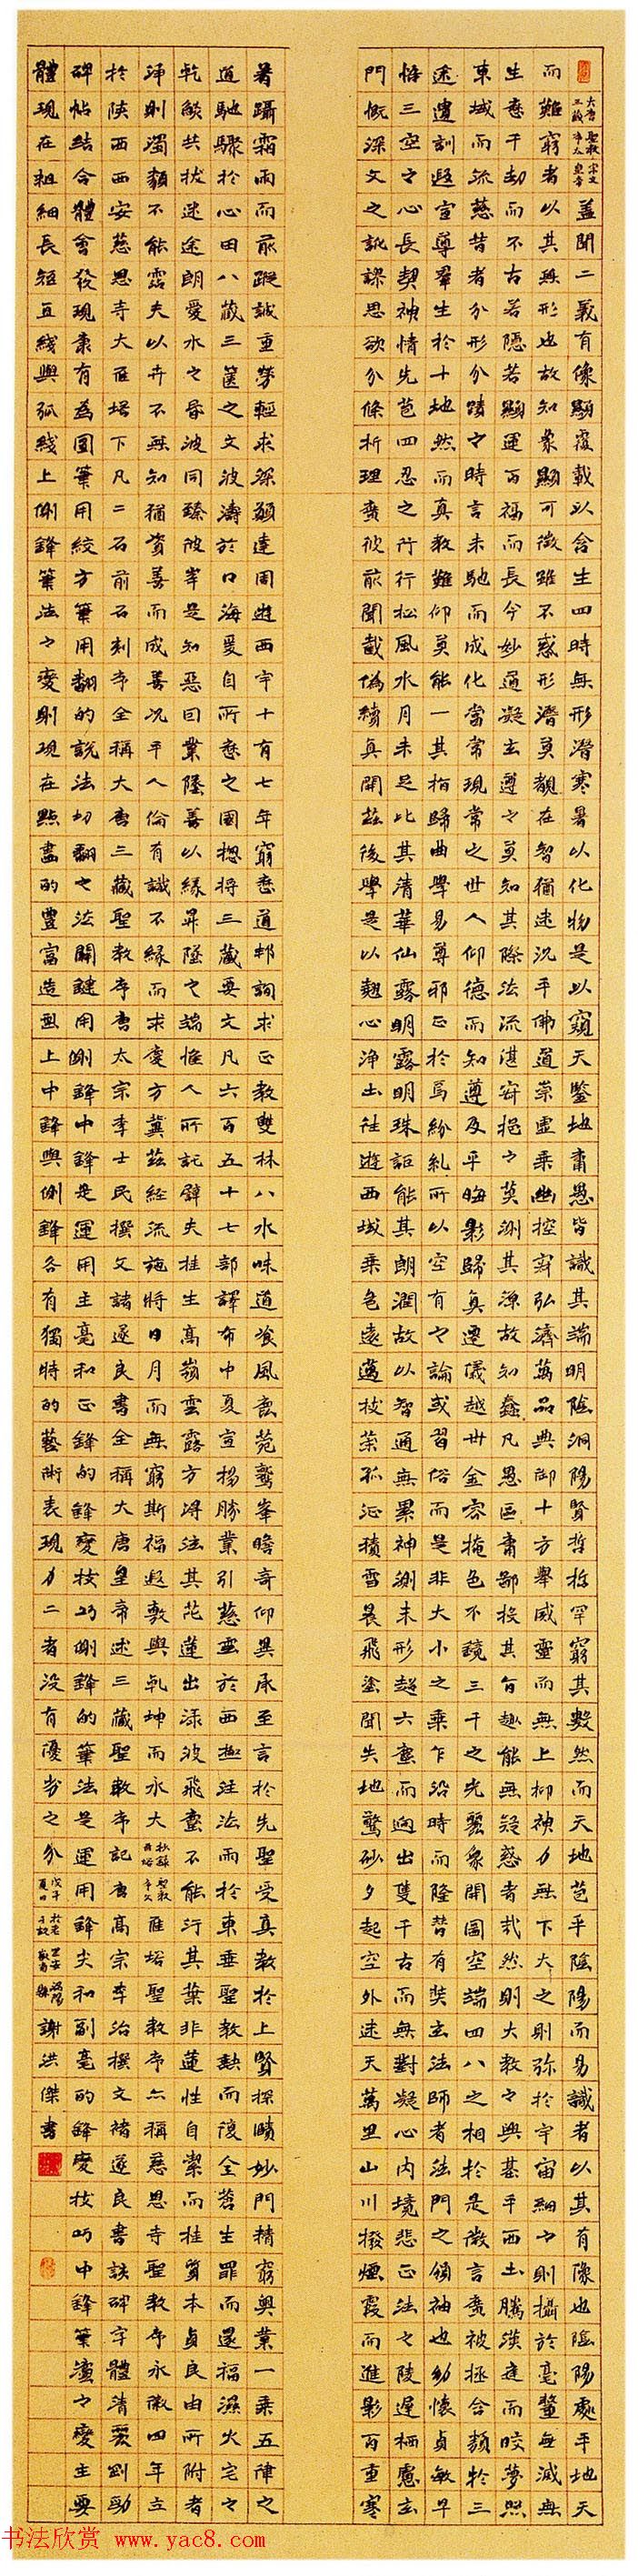 大唐聖教
蓋聞二義有像顯覆載以含生四時無形潛寒暑以化物是以窺天鑒地庸愚皆識其端明陰洞陽賢哲哲罕窮其數然而天地苞乎陰陽而易識者以其有像也陰陽處乎地天
而難窮者以其無形也故知象顯可徵雖不惑形潛莫覩在智猶迷況乎佛道崇虛乘幽控寂弘濟萬品典御十方舉威靈而無上抑神力無下大之則彌於宇宙細之則攝於毫釐無滅無
生歷千劫而不古若隱若顯運百福而長今妙道凝玄遵之莫知其際法流湛寂挹之莫測其源故知蠢凡愚區庸鄙投其旨趣能無疑惑者哉然則大教之興基乎西土騰漢庭而皎夢照
東域而流慈昔者分形分蹟之時言未馳而成化當常現常之世人仰德而知遵及乎晦影歸真遷儀越世金容掩色不鏡三千之光麗象開圖空端四八之相於是微言廣被拯含類於三
途遺訓遐宣導羣生於十地然而真教難仰莫能一其指歸曲學易尊邪正於焉紛糺所以空有之論或習俗而是非大小之乘乍沿時而隆替有奘玄法師者法門之領袖也幼懷貞敏早
悟三空之心長契神情先苞四忍之行行松風水月未足比其清華仙露明露明珠詎能其朗潤故以智通無累神測未形超六塵而迥出隻千古而無對凝心內境悲正法之陵遲栖慮玄
門慨深文之訛謬思欲分條析理廣彼前聞截偽續真開茲後學是以翹心淨土往遊西域乘危遠邁杖策孤征積雪晨飛塗聞失地驚砂夕起空外迷天萬里山川撥煙霞而進影百重寒
暑躡霜雨而前蹤誠重勞輕求深願達周遊西宇十有七年窮歷道邦詢求正教雙林八水味道飡風鹿菀鷲峯瞻奇仰異承至言於先聖受真教於上賢探賾妙門精窮奧業一乘五律之
道馳驟於心田八藏三篋之文波濤於口海爰自所歷之國揔將三藏要文凡六百五十七部譯布中夏宣揚勝業引慈雲於西極注法雨於東垂聖教缺而復全蒼生罪而還福濕火宅之
乾燄共拔迷途朗愛水之昏波同臻彼岸是知惡因業墜善以緣昇墜之端惟人所託譬夫桂生高嶺雲露方得泫其花蓮出淥波飛塵不能汙其葉非蓮性自潔而桂質本貞良由所附者
淨則濁類不能霑夫以卉不無知猶資善而成善況乎人倫有識不緣而求慶方冀茲經流施將日月而無窮斯福遐敷與乾坤而永大雁塔聖教序亦稱慈恩寺聖教序永徽四年立
於陝西西安慈恩寺大雁塔下凡二石前石刻序全稱大唐三藏聖教序唐太宗李士民撰文諸遂良書全稱大唐皇帝述三藏聖教序記唐高宗李治撰文褚遂良書該碑字體清麗剛勁
碑帖結合體會發現康有為圓筆用絞方筆用翻的說法切翻之法關鍵用側鋒中鋒是運用主毫和正鋒的鋒變技巧側鋒的筆法是運用鋒尖和副毫的鋒度技巧中鋒筆之變主要
體現在粗細長短直綫與弧綫上側鋒筆法之變則現在點畫的豐富造型上中鋒與側鋒各有獨特的藝術表現力二者沒有優劣之分戊子夏日謝洪傑書
书法欣赏 www.yac8.com